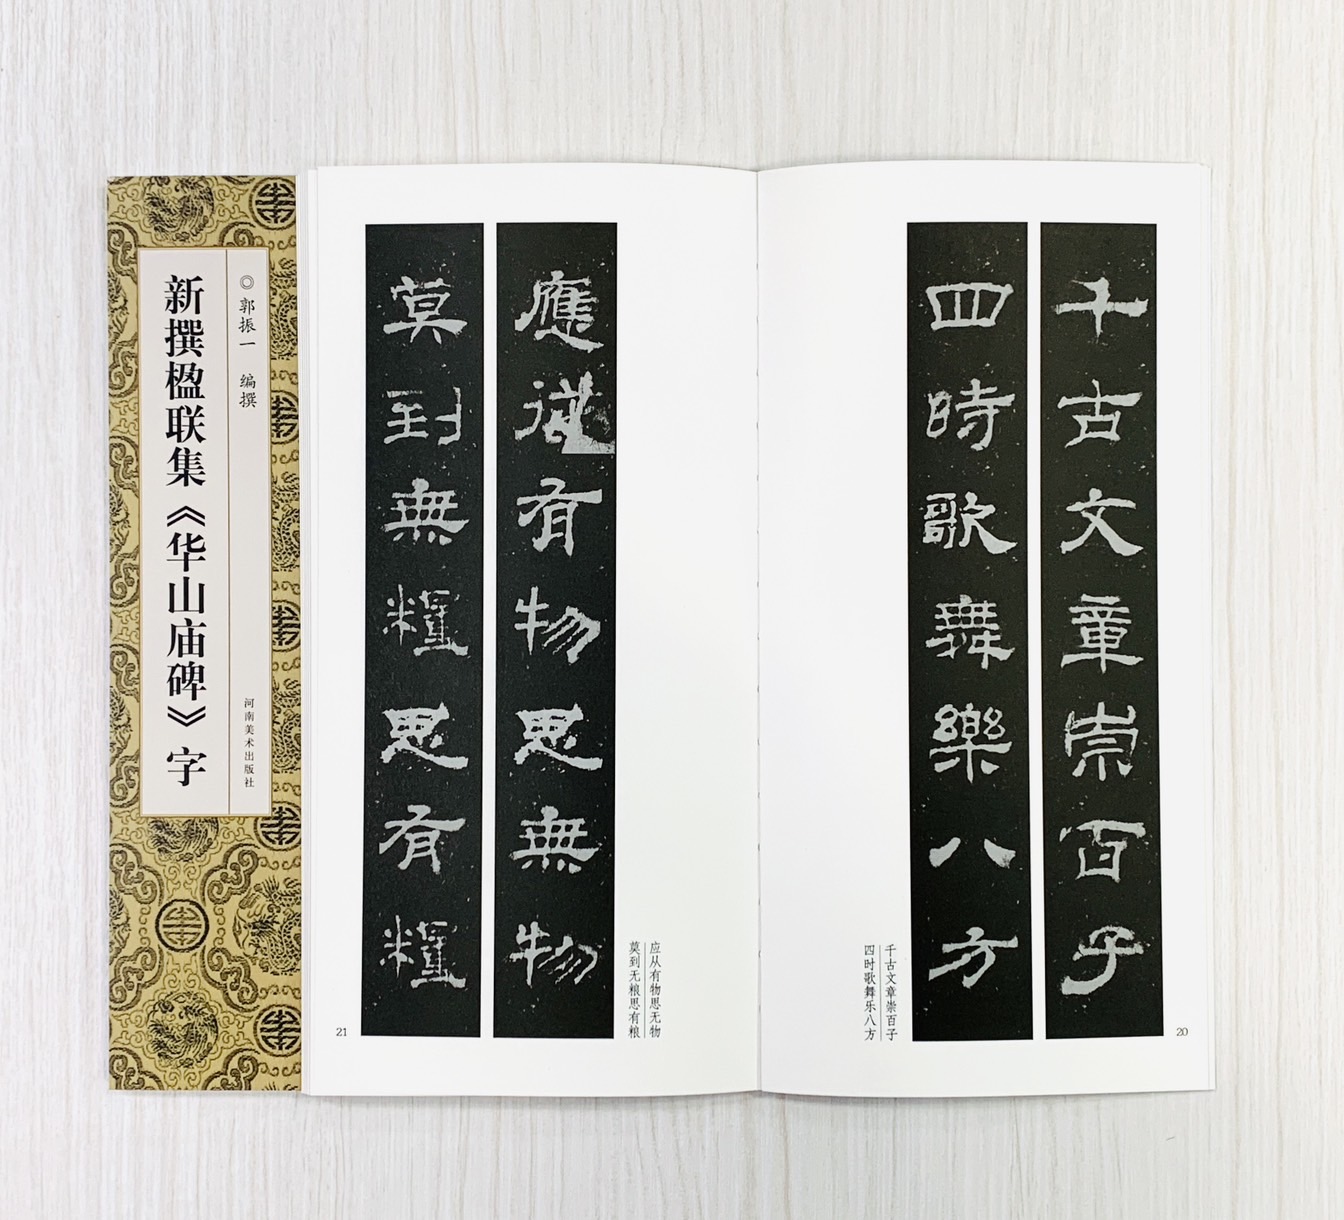 千古文章崇百子
四時歌舞樂八方
千古文章崇百子
四时歌舞乐八方
20
應從有物思無物
莫到無糧思有糧
应从有物思无物
莫到无粮思有粮
21
◎郭振一 编撰
新撰楹联集《华山庙碑》字
河南美术出版社